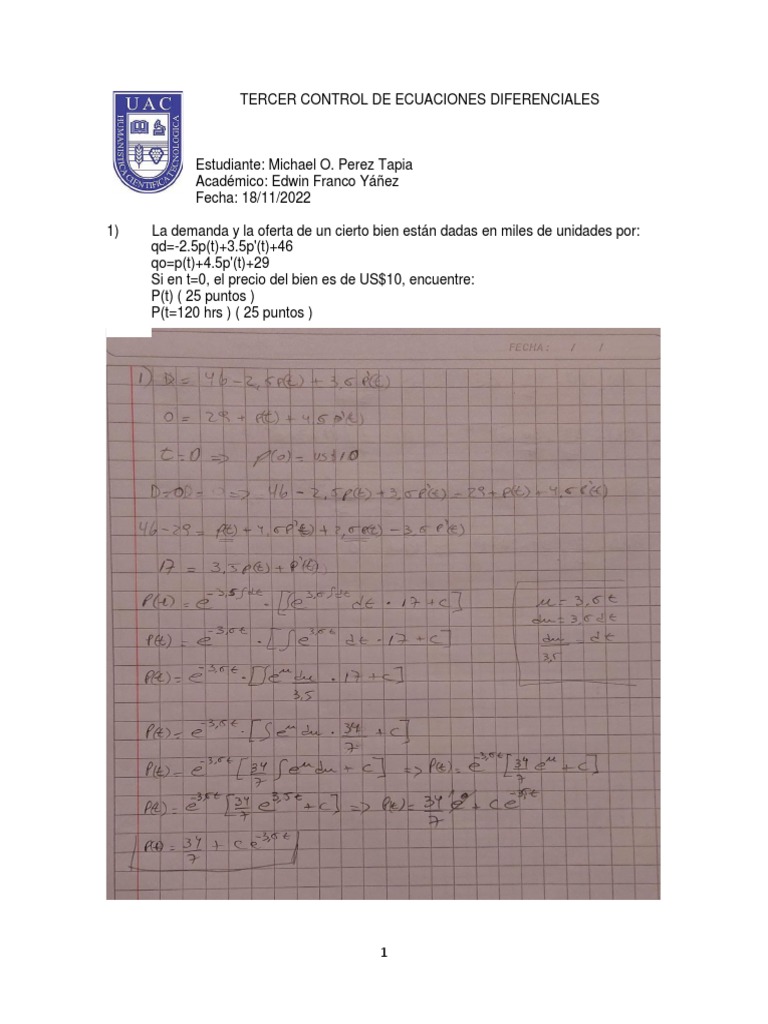 UAC
HUMANISTICA CIENTIFICA TECNOLOGICA
TERCER CONTROL DE ECUACIONES DIFERENCIALES
Estudiante: Michael O. Perez Tapia
Académico: Edwin Franco Yáñez
Fecha: 18/11/2022
1) La demanda y la oferta de un cierto bien están dadas en miles de unidades por:
qd=-2.5p(t)+3.5p'(t)+46
qo=p(t)+4.5p'(t)+29
Si en t=0, el precio del bien es de US$10, encuentre:
P(t) ( 25 puntos )
P(t=120 hrs ) ( 25 puntos )
FECHA: / /
1) D = 46 - 2,5p(t) + 3,5 P'(t)
O = 29 + P(t) + 4,5 p'(t)
t=0 => p(0) = US$10
=> 46 - 2,5p(t) + 3,5p'(t) = 29 + p(t) + 4,5 p'(t)
46 - 29 = p(t) + 4,5p'(t) + 2,5p(t) - 3,5 p'(t)
17 = 3,5p(t) + P'(t)
P(t) = e^-3,5∫dt · [∫e^3,5∫dt dt · 17 + c]
P(t) = e^-3,5t · [∫e^3,5t dt · 17 + c]
P(t) = e^-3,5t · [∫e^u du/3,5 · 17 + c]
u = 3,5t
du = 3,5dt
du/3,5 = dt
P(t) = e^-3,5t · [∫e^u du · 34/7 + c]
P(t) = e^-3,5t [34/7 ∫e^u du + c] => P(t) = e^-3,5t [34/7 e^u + c]
P(t) = e^-3,5t [34/7 e^3,5t + c] => P(t) = 34/7 e^0 + c e^-3,5t
P(t) = 34/7 + c e^-3,5t
1